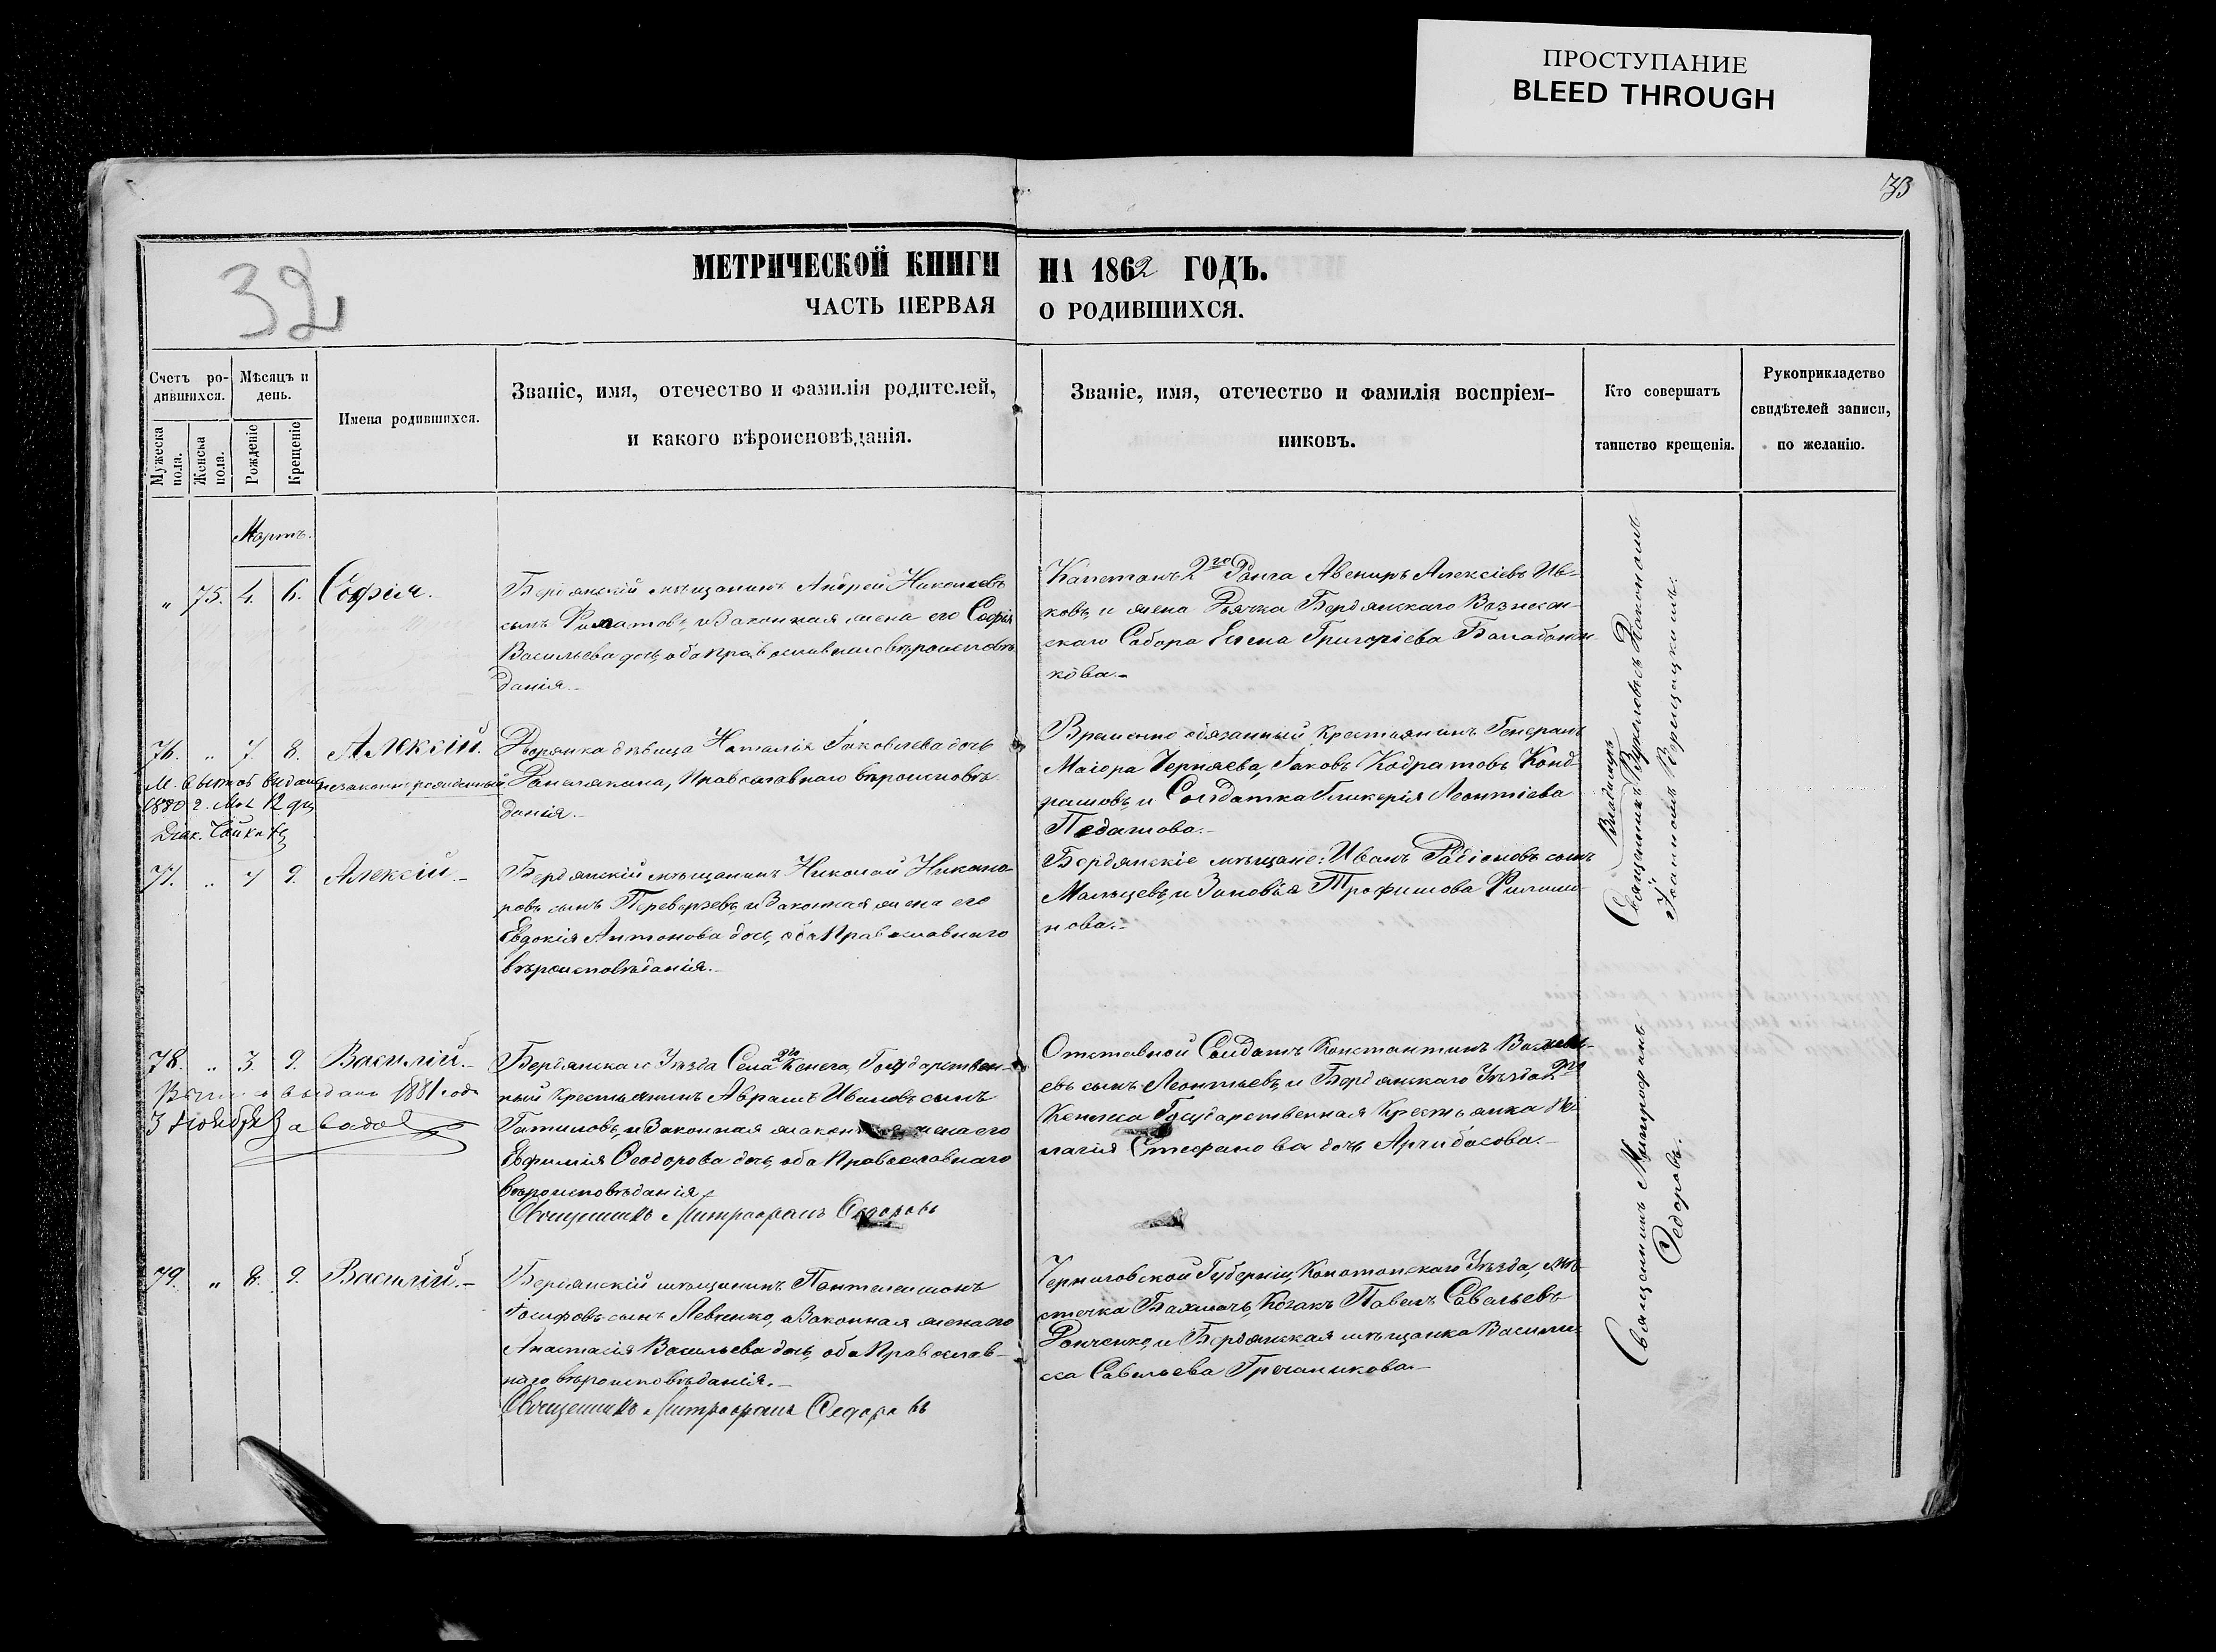 ПРОСТУПАНИЕ
BLEED THROUGH
33
32
МЕТРИЧЕСКОЙ КНИГИ НА 1862 ГОДЪ.
ЧАСТЬ ПЕРВАЯ О РОДИВШИХСЯ.
Счетъ ро-
дившихся.
Мужеска пола.
Женска пола.
Мѣсяцъ и
день.
Рожденіе
Крещеніе
Имена родившихся.
Званіе, имя, отечество и фамилія родителей,
и какого вѣроисповѣданія.
Званіе, имя, отечество и фамилія воспріем-
никовъ.
Кто совершатъ
таинство крещенія.
Рукоприкладство
свидѣтелей записи,
по желанію.
Мартъ.
" 75. 4. 6. Софія.
Бердянскій мѣщанинъ Андрей Николаевъ
сынъ и законная жена его Софья
Васильева дочь, оба православнаго вѣроисповѣ-
данія.-
Капитанъ 2го Ранга Авениръ Алексіевъ Ив-
ковъ, и жена Дьячка Бердянскаго Вознесен-
скаго Собора Елена Григоріева Балабани-
кова.-
76. " 7. 8. Алексій.
незаконнорожденный
М. выдана
1880 г. 12 дня
Дворянка дѣвица Наталія Іаковлева дочь
Православнаго вѣроисповѣ-
данія.-
Временно обязанный крестьянинъ Генералъ
Маіора Черняева, Іаковъ Кодратовъ Конд-
рашовъ, и Солдатка Гликерія Леонтіева
77. " 7 9. Алексій.-
Бердянскій мѣщанинъ Николай Никано-
ровъ сынъ Переверзевъ, и Законная жена его
Евдокія Антонова дочь, оба Православнаго
вѣроисповѣданія.-
Бердянскіе мѣщане: Иванъ Радіоновъ сынъ
Мальцевъ, и Зиновія Трофимова Филипи-
нова.-
78. " 3. 9. Василій.-
выдана 1881 года
3 Ноября
Бердянскаго Уѣзда Села 2го Кенега, Государствен-
ный крестьянинъ Авраамъ Ивановъ сынъ
и Законная жена его
Евфимія Ѳеодорова дочь, оба Православнаго
вѣроисповѣданія.
Священникъ Митрофанъ Федоровъ
Отставной Солдатъ Константинъ Василь-
евъ сынъ Леонтьевъ, и Бердянскаго Уѣзда 2го
Кенега Государственная Крестьянка Пе-
лагія Стефанова дочь Арчибасова.-
79. " 8. 9. Василій.-
Бердянскій мѣщанинъ Пантелеимонъ
Іосифовъ сынъ Левченко, и Законная жена его
Анастасія Васильева дочь, оба Православ-
наго вѣроисповѣданія.-
Священникъ Митрофанъ Федоровъ
Черниговской Губерніи, Конотопскаго Уѣзда, Мѣ-
стечка Бахмачь, Козакъ Павелъ Савельевъ
Ронченко, и Бердянская мѣщанка Васили-
сса Савельева Гречаникова.-
Священникъ
Іоанномъ Верещацкимъ.
Священникъ Митрофанъ
Федоровъ.